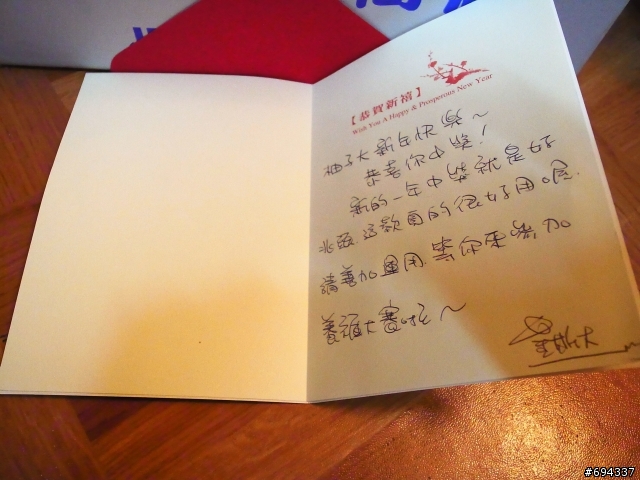 【恭賀新禧】
Wish You A Happy & Prosperous New Year
柚子大 新年快樂～
恭喜你中獎！
新的一年中獎就是好
兆頭.這款真的很好用喔.
請善加運用.等你來參加
養頭大賽啦～
#694337